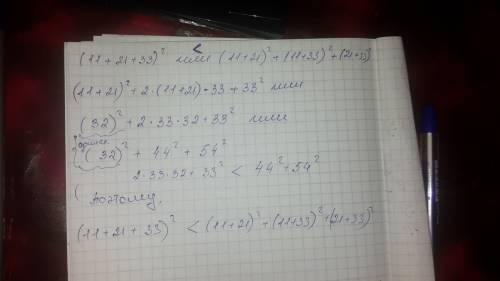 <
(11+21+33)² или (11+21)²+(11+33)²+(21+33)²
(11+21)²+2·(11+21)·33+33² или
(32)²+2·33·32+33² или
одинак.
(32)²+44²+54²
2·33·32+33² < 44²+54²
Поэтому,
(11+21+33)² < (11+21)²+(11+33)²+(21+33)²